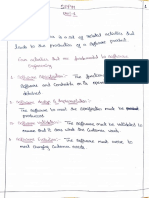 SPPM
1
UNIT-1
is a set of related activities that
leads to the production of a software product.
Four activities that are fundamental to software
Engineering
1. Software Specification :- The
Software and Constraints on its
defined
2. Software design & Implementation :-
The software to meet the specification must be
3. Software Validation :- The software must be validated to
ensure that it does what the customer wants.
4. Software Evolution :- The software must evolve to
meet changing customer needs.